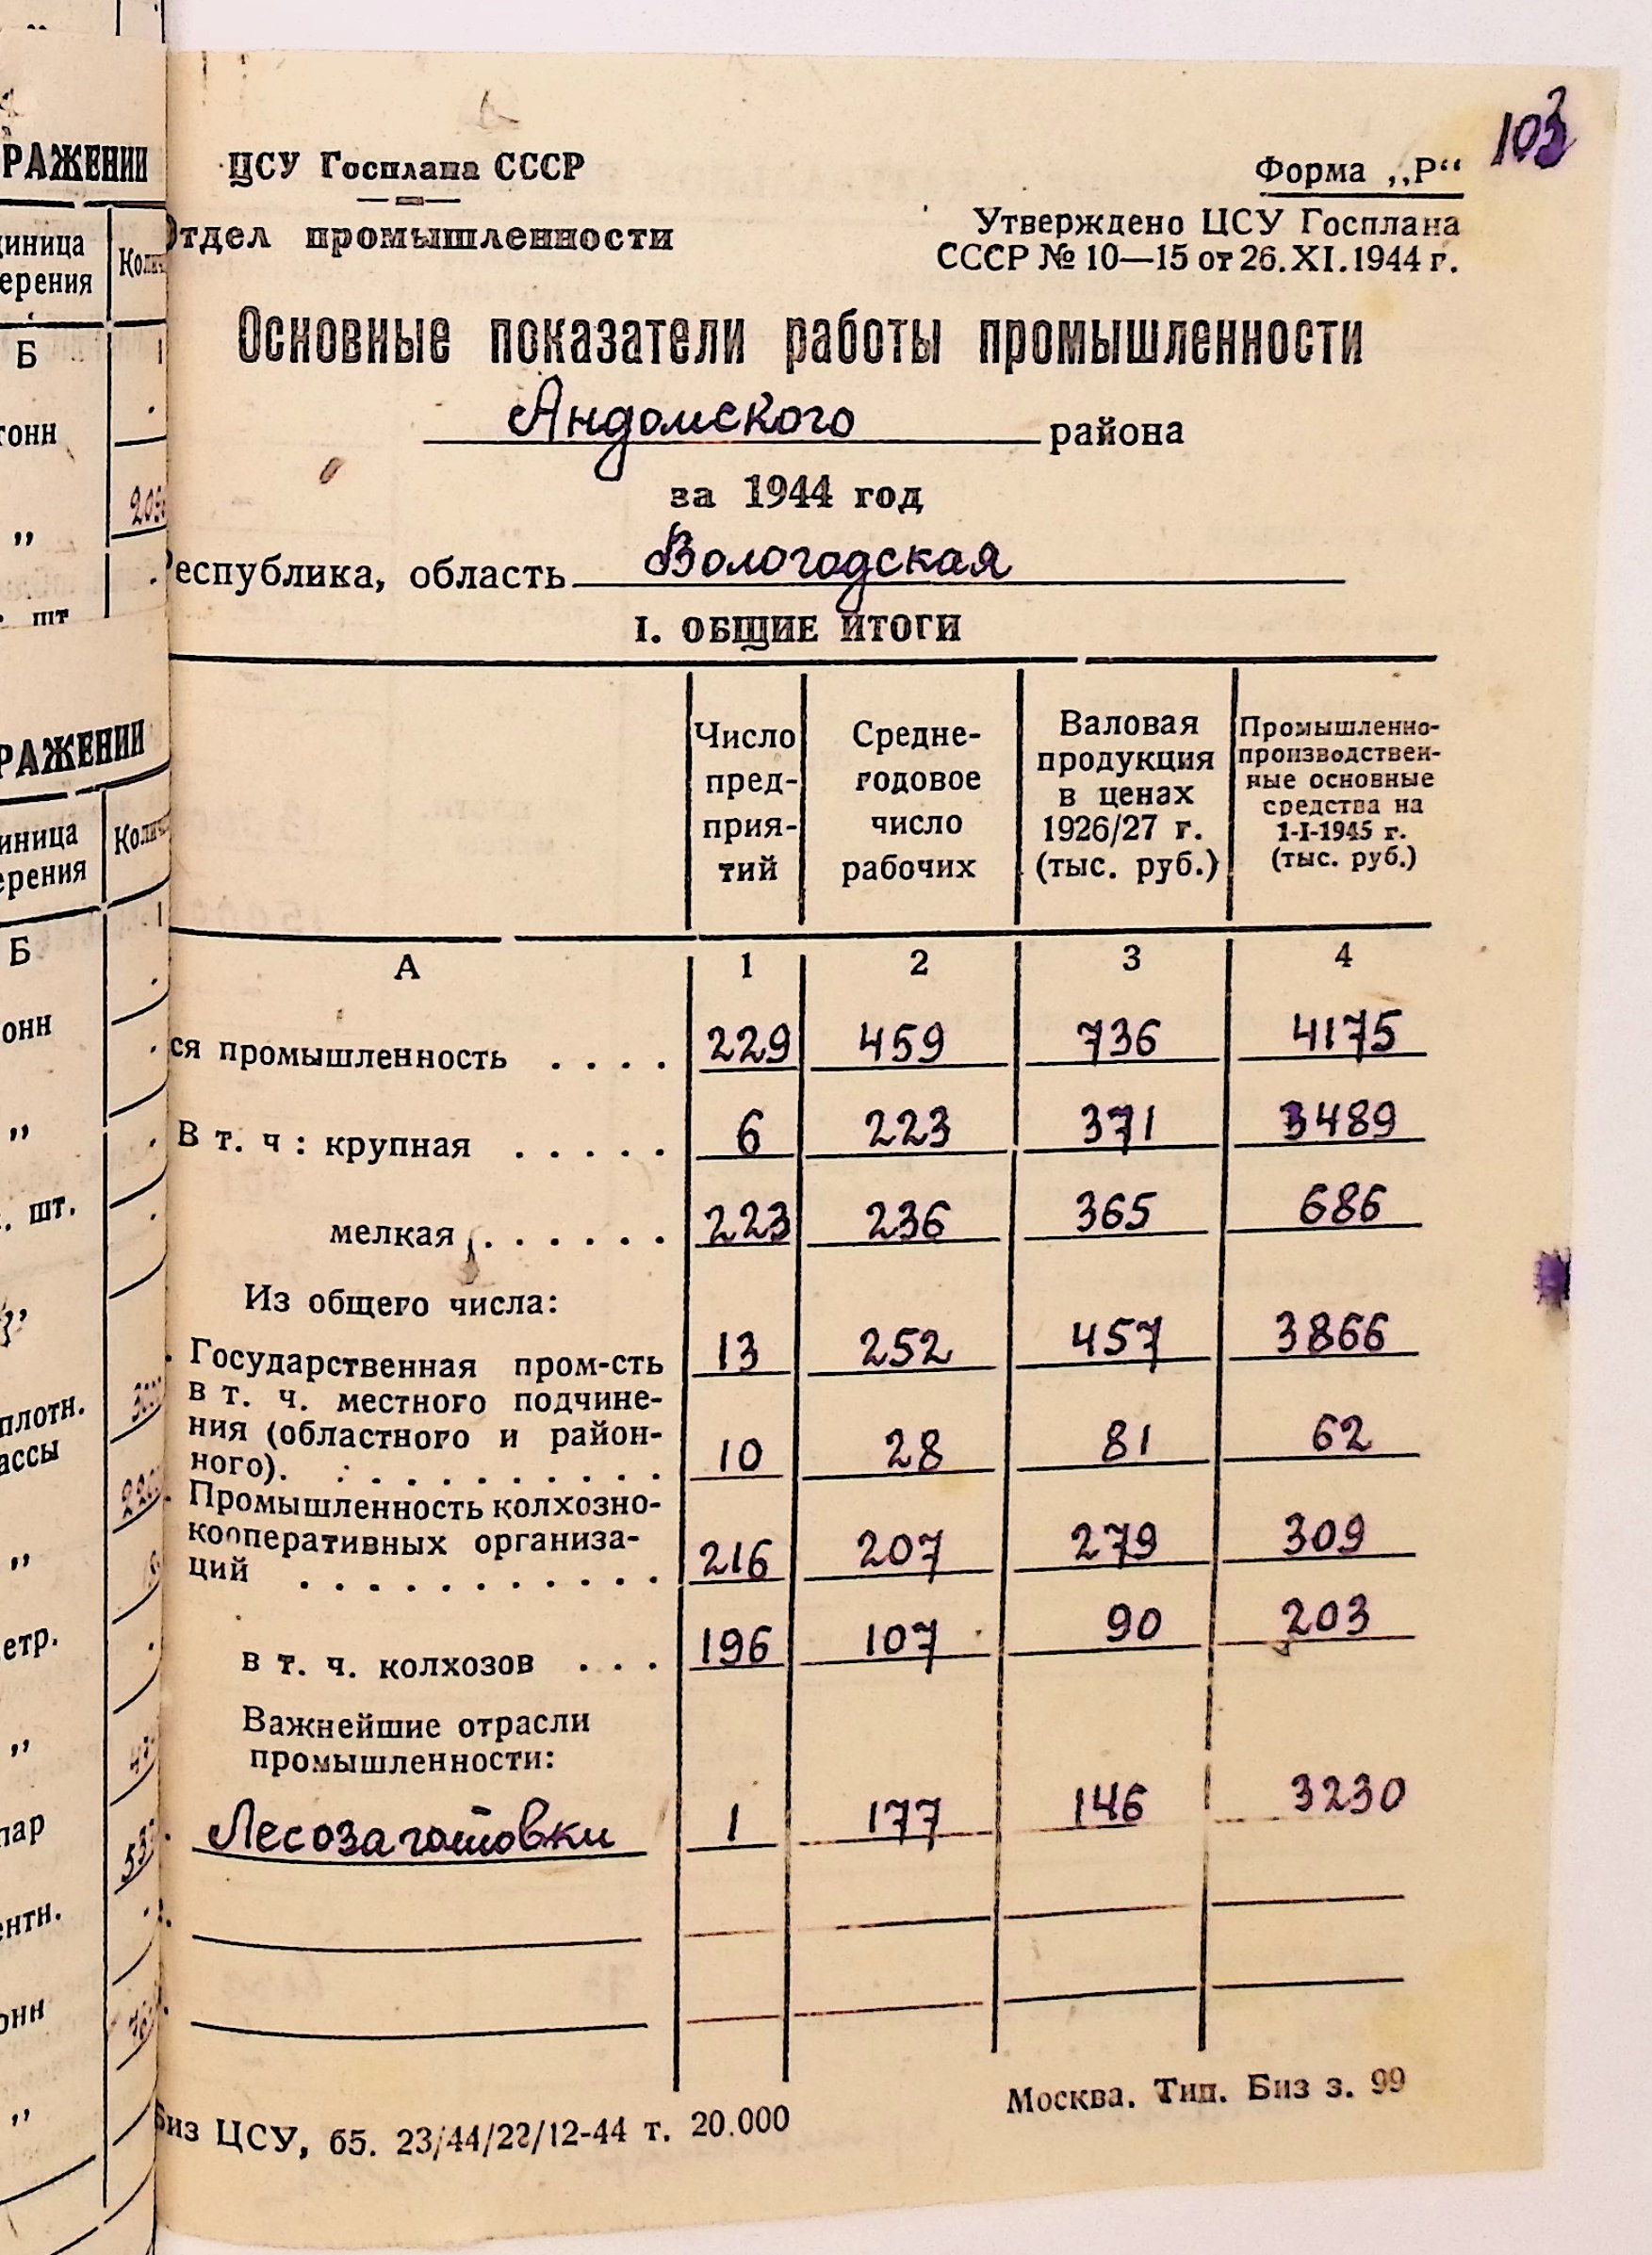 103
ЦСУ Госплана СССР
Форма „Р“
Отдел промышленности
Утверждено ЦСУ Госплана
СССР № 10—15 от 26.XI.1944 г.
Основные показатели работы промышленности
Андомского района
за 1944 год
Республика, область Вологодская
I. ОБЩИЕ ИТОГИ
Число пред-прия-тий
Средне-годовое число рабочих
Валовая продукция в ценах 1926/27 г. (тыс. руб.)
Промышленно-производствен-ные основные средства на 1-I-1945 г. (тыс. руб.)
А 1 2 3 4
ся промышленность . . . . 229 459 736 4175
В т. ч : крупная . . . . . 6 223 371 3489
мелкая . . . . . . 223 236 365 686
Из общего числа:
Государственная пром-сть 13 252 457 3866
в т. ч. местного подчине-
ния (областного и район-
ного). . . . . . . . . . . 10 28 81 62
Промышленность колхозно-
кооперативных организа-
ций . . . . . . . . . . . 216 207 279 309
в т. ч. колхозов . . . 196 107 90 203
Важнейшие отрасли
промышленности:
Лесозаготовки 1 177 146 3230
Биз ЦСУ, 65. 23/44/22/12-44 т. 20.000
Москва. Тип. Биз з. 99
РАЖЕНИИ
диница
ерения
Колич
Б
1
тонн
„
шт
РАЖЕНИИ
иница
ерения
Колич
Б
1
онн
„
. шт.
„
плотн.
ассы
„
етр.
„
пар
ентн.
онн
„